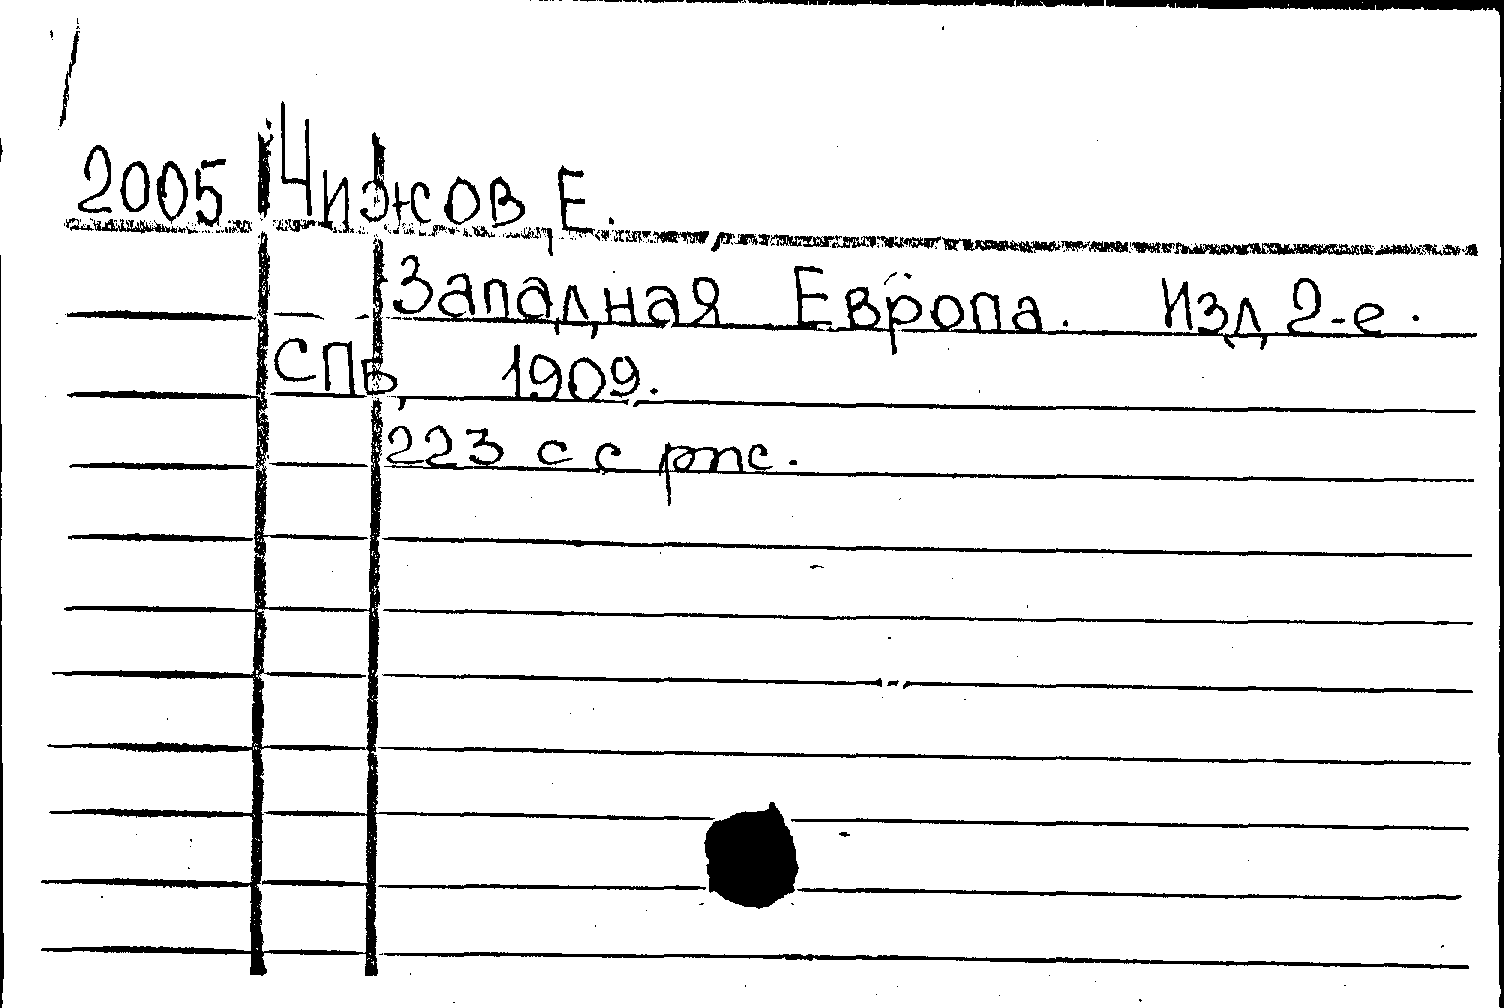 2005 Чижов, Е.
Западная Европа. Изд 2-е.
СПб, 1909.
223 с с рис.